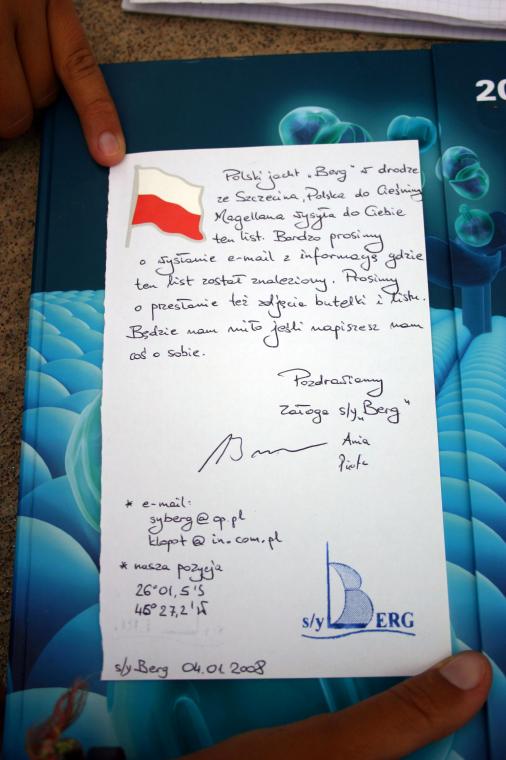 20
Polski jacht „Berg" w drodze
ze Szczecina, Polska do Cieśniny
Magellana wysyła do Ciebie
ten list. Bardzo prosimy
o wysłanie e-mail z informacją gdzie
ten list został znaleziony. Prosimy
o przesłanie też zdjęcia butelki i listu.
Będzie nam miło jeśli napiszesz nam
coś o sobie.
Pozdrawiamy
załoga s/y „Berg"
Ania
Piotr
* e-mail:
syberg@op.pl
klopot@in.com.pl
* nasza pozycja
26°01,5'S
45°27,2'W
s/y BERG
s/y Berg 04.01.2008